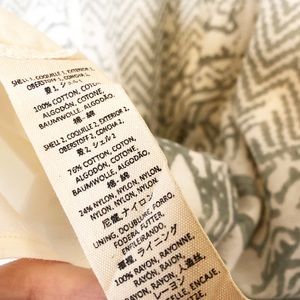 SHELL 1, COQUELLE 1, EXTERIOR 1,
OBERSTOFF 1, CONCHA 1,
殼 1, シェル 1
100% COTTON, COTON,
ALGODÓN, COTONE,
BAUMWOLLE, ALGODÃO,
棉, 綿
SHELL 2, COQUELLE 2, EXTERIOR 2,
OBERSTOFF 2, CONCHA 2,
殼 2, シェル 2
76% COTTON, COTON,
ALGODÓN, COTONE,
BAUMWOLLE, ALGODÃO,
棉, 綿
24% NYLON, NYLON, NYLON,
NYLON, NYLON, NYLON,
尼龍, ナイロン
LINING, DOUBLURE, FORRO,
FODERA, FUTTER,
ライニング
100% RAYON, RAYONNE,
RAYON, RAION,
レーヨン
ENCAJE,